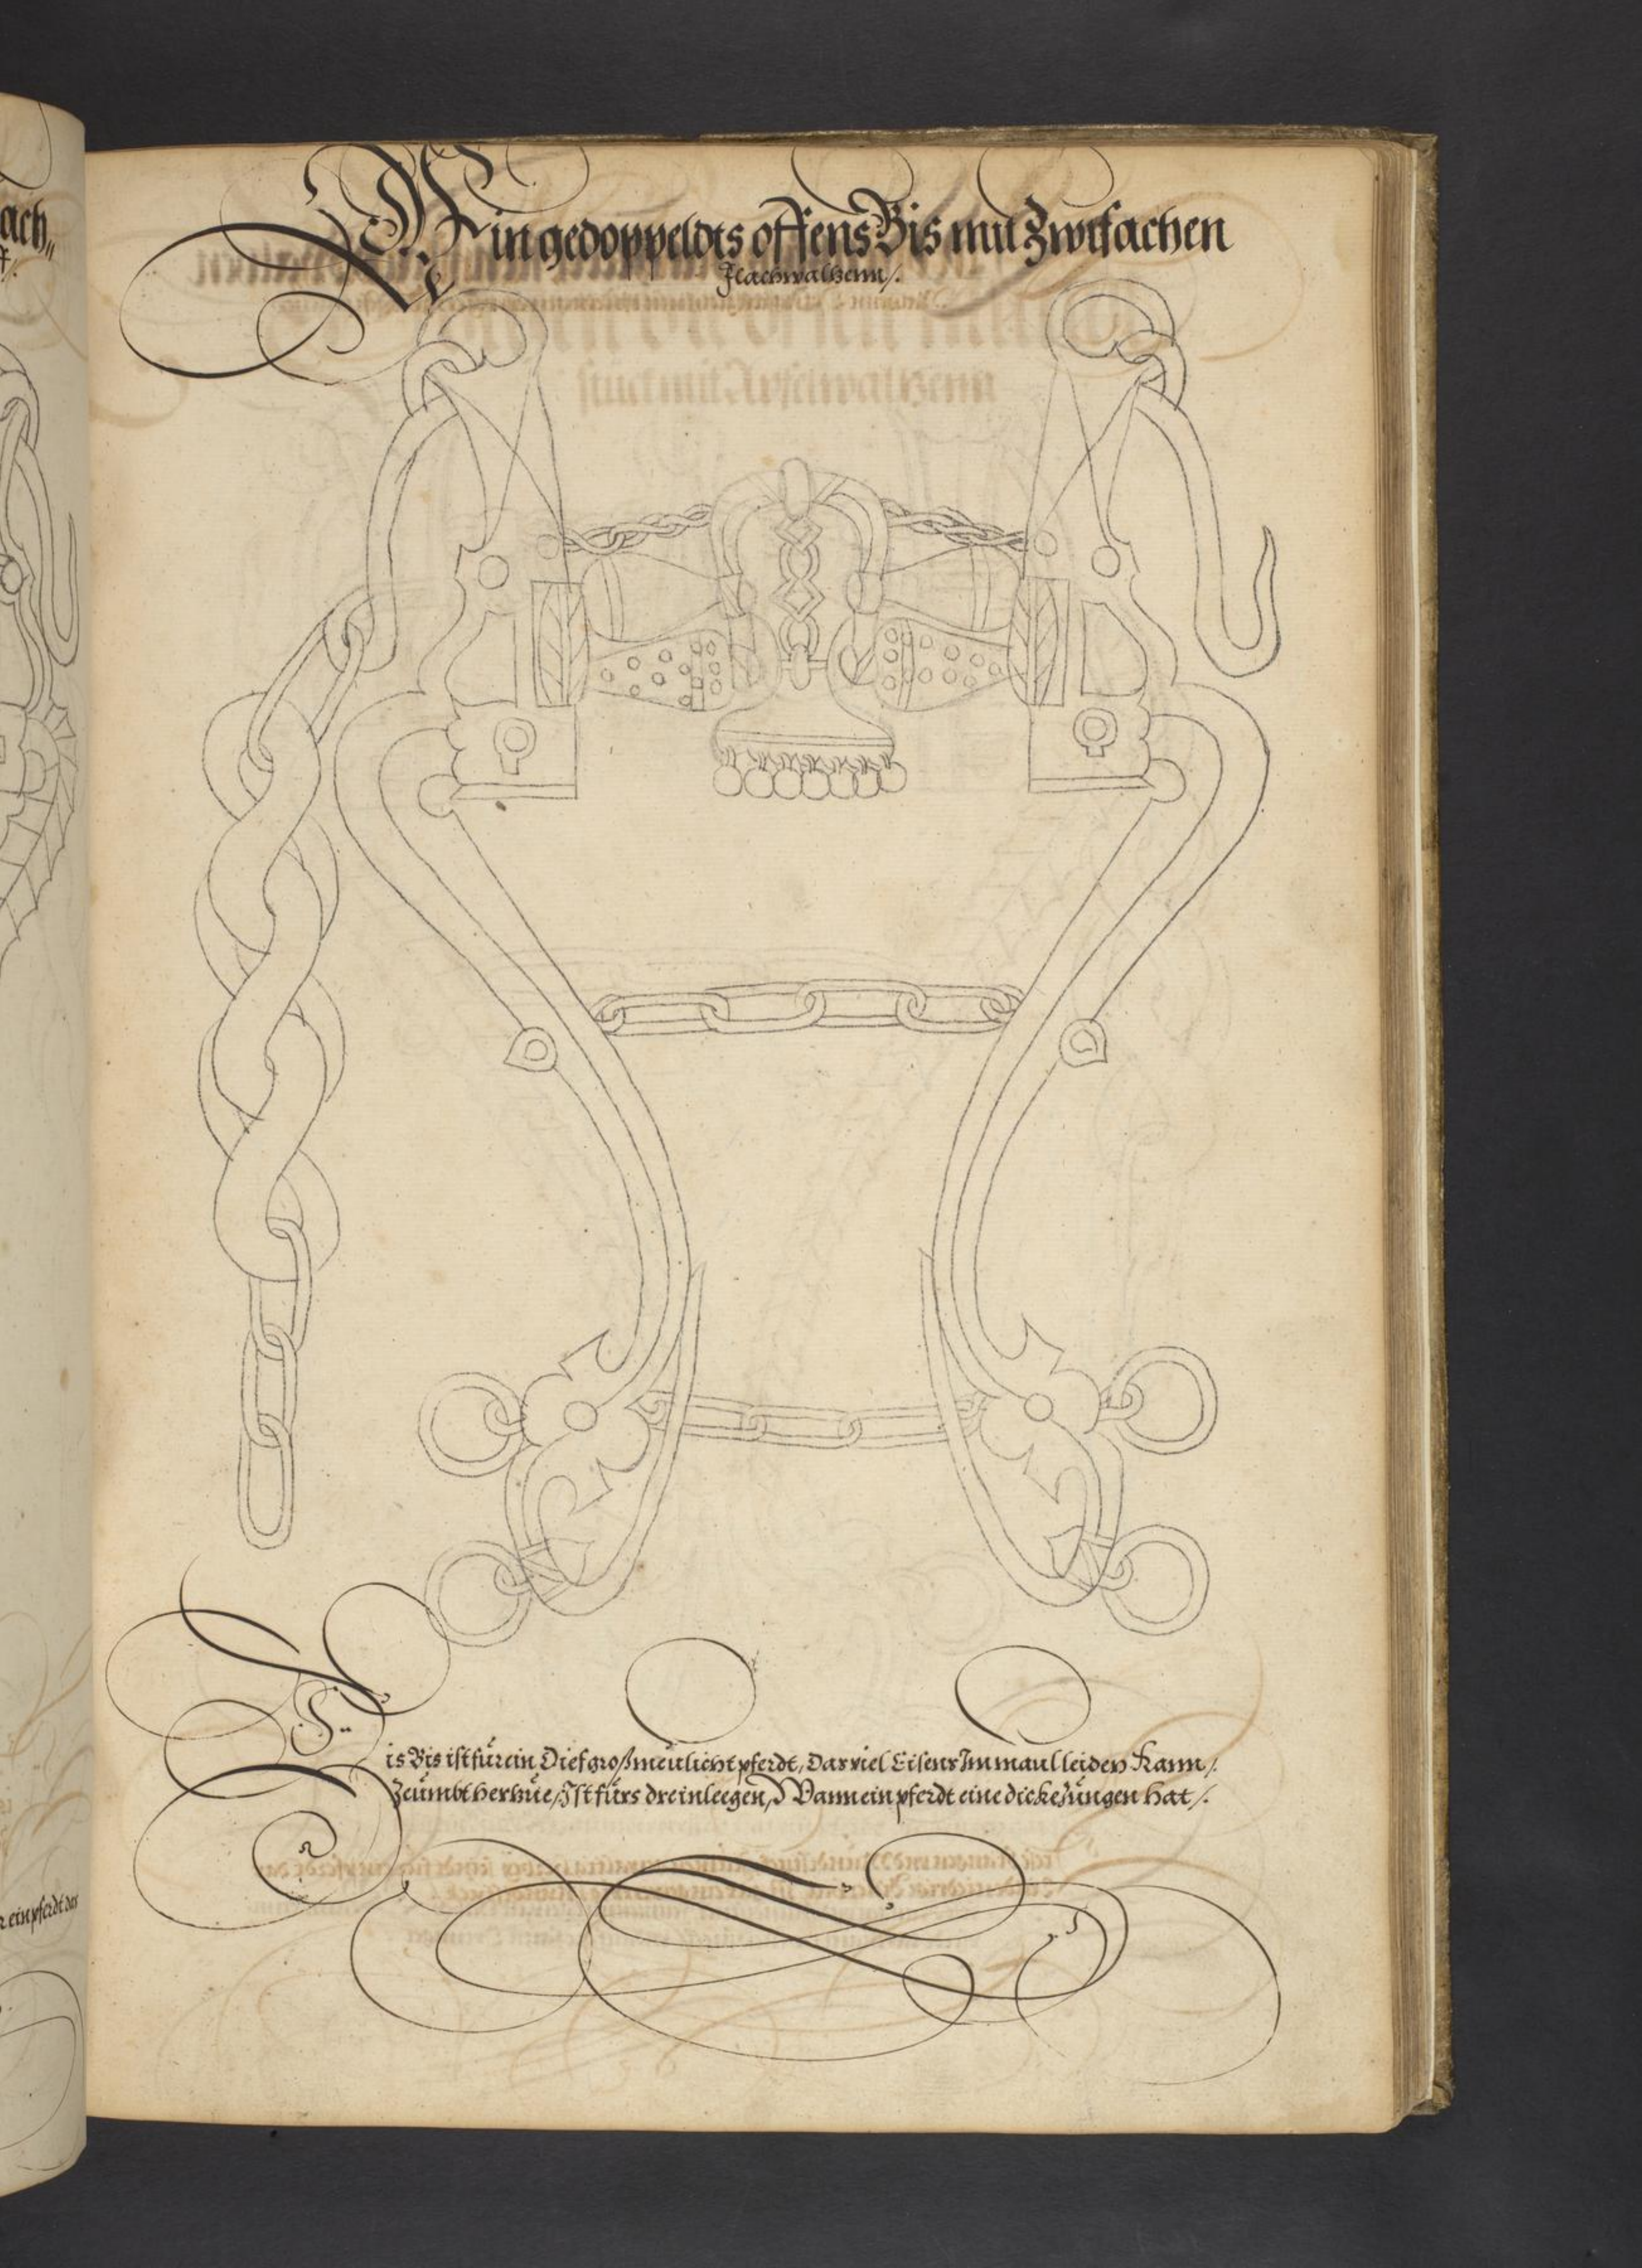 Ein gedoppeldts offens Bis mit Zwifachen
Flachwalzenn /.
Dis Bis ist für ein Dief großmeülicht pferdt, Das viel Eisens Im maul leiden Kann /.
Zeümbt herbüe / Ist fürs dreinleegen, Wann ein pferdt eine dicke züngen hat /.
ach„
ein pferdt das